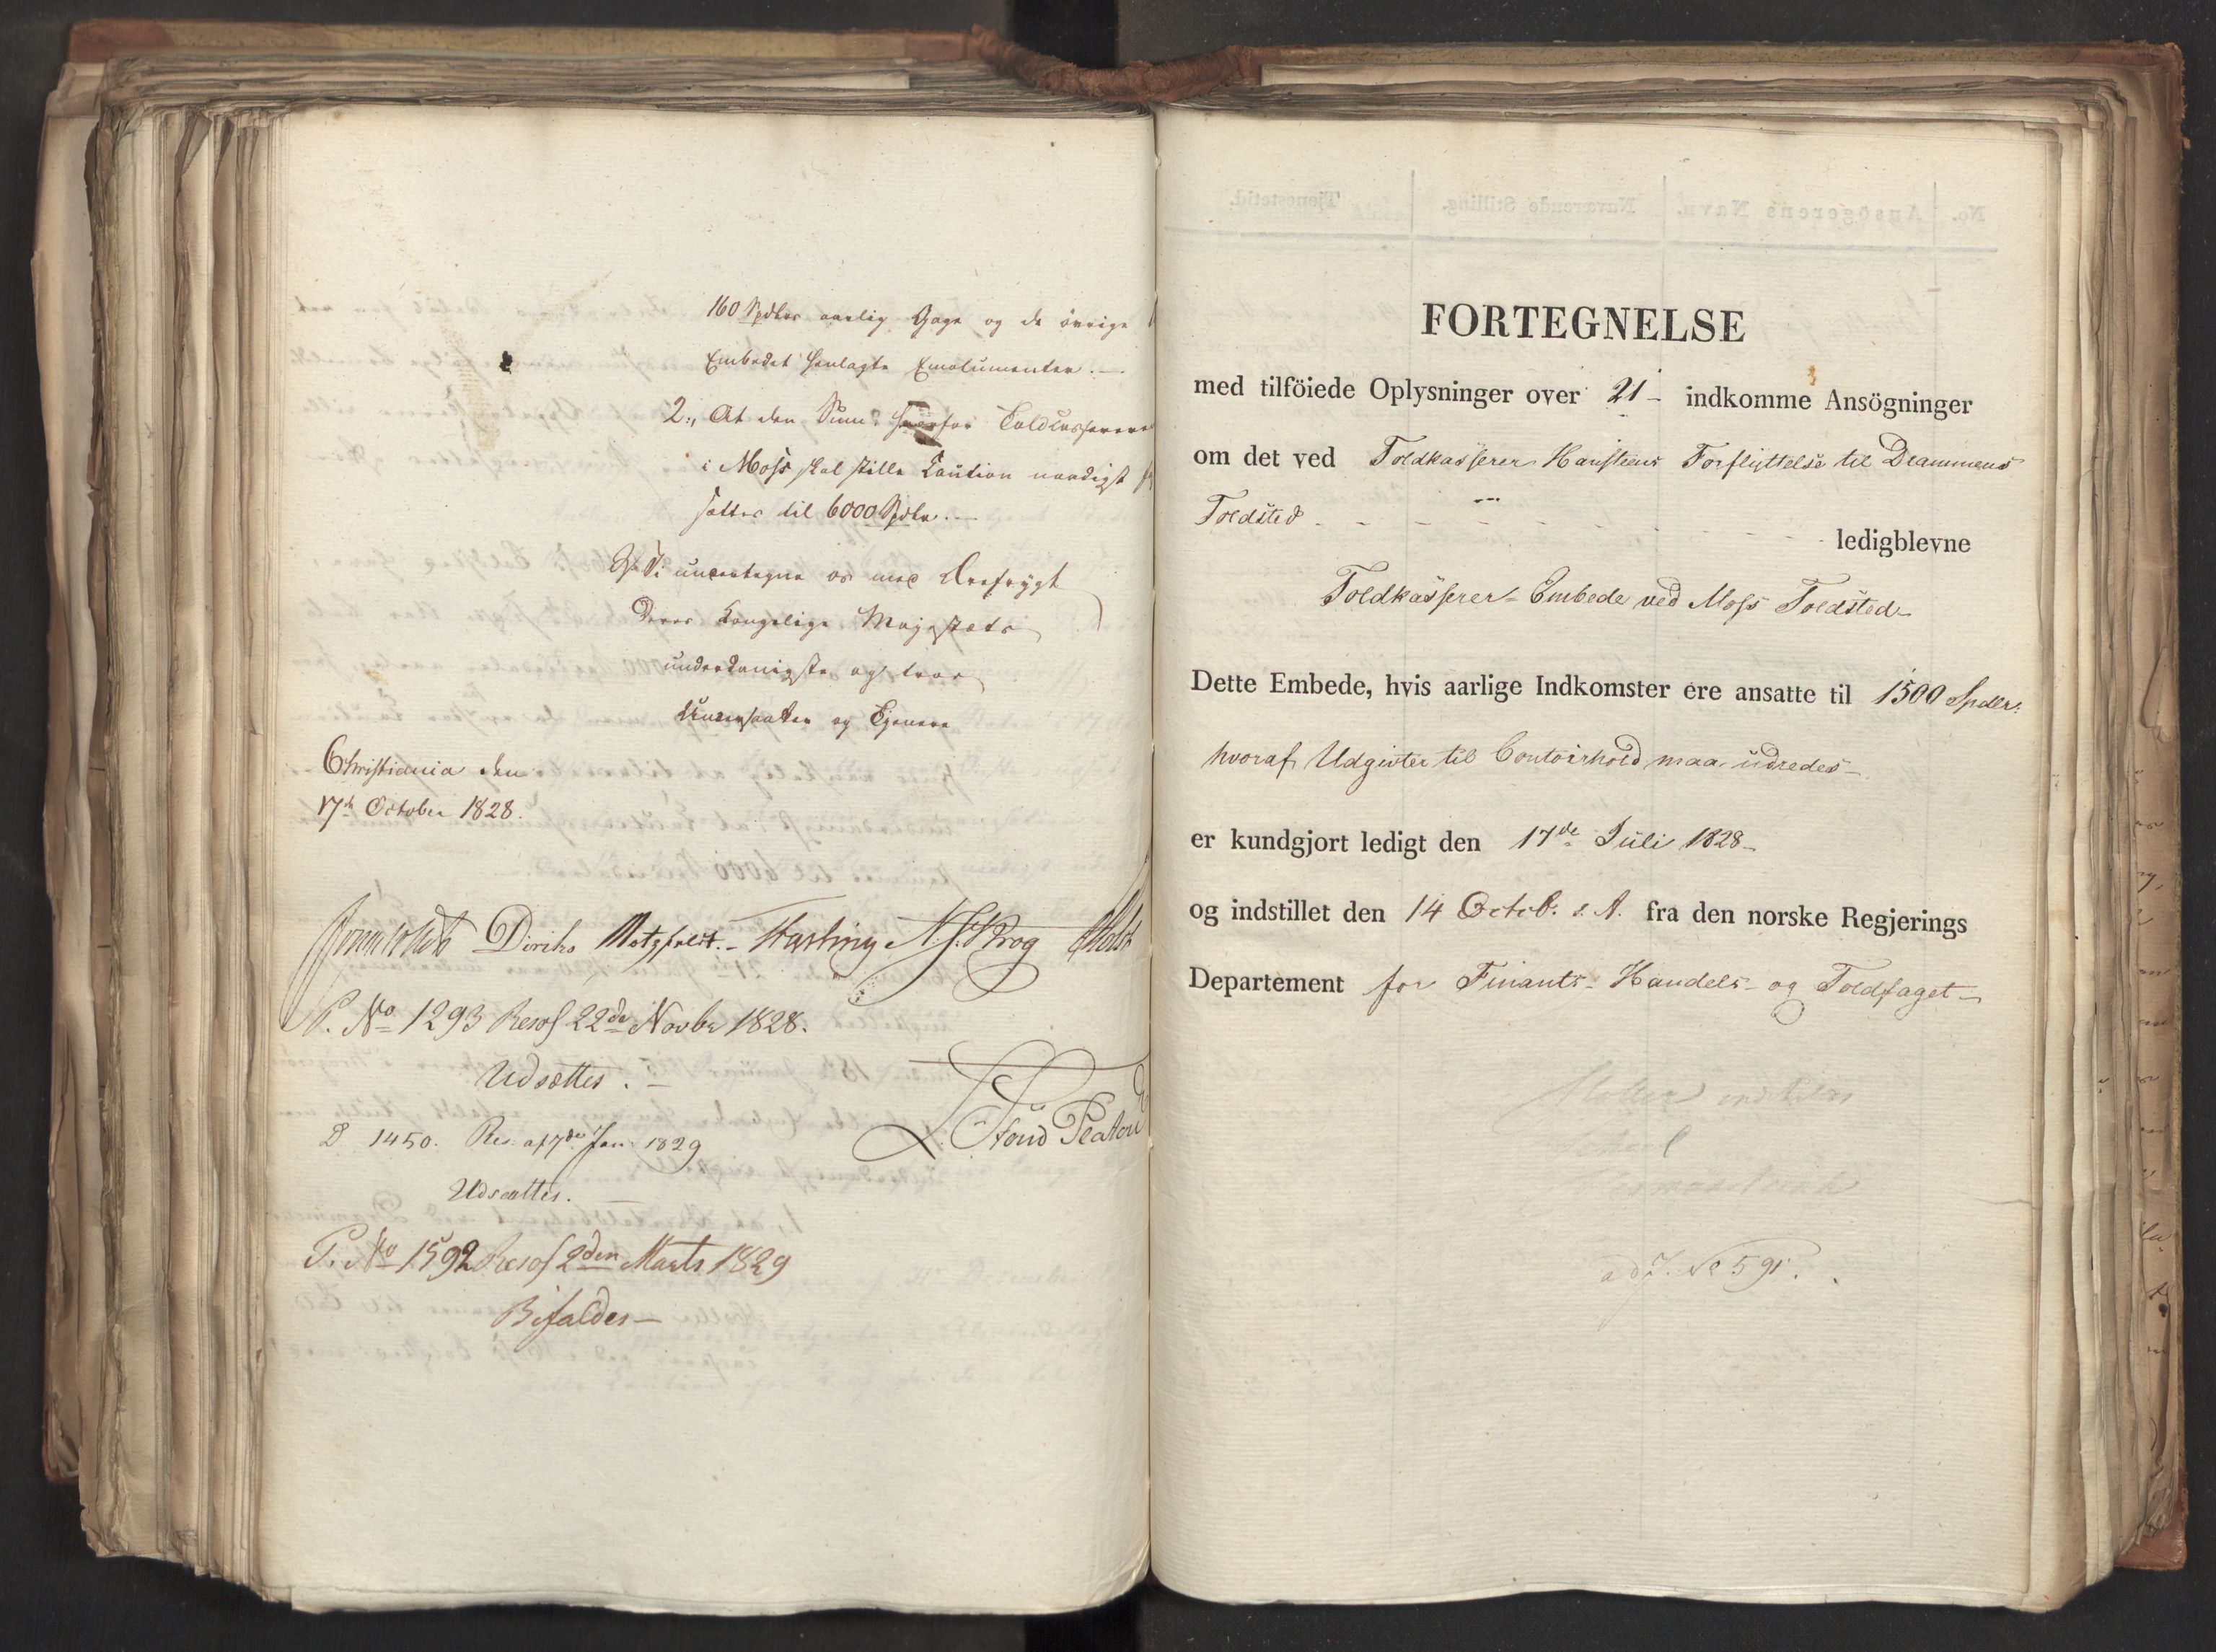 160 Spdlrs aarlig Gage og de övrige
Embedet henlagte Emolumenter. —
2., At den Sum hvorfor Toldcasserere
i Moss skal stille Caution naadigst
sættes til 6000 Spdlr. —
Vi undertegne os med Ærefrygt
Deres Kongelige Majestæts
underdanigste og troe
Undersaatter og Tjenere
Christiania den
17de October 1828.
Diriks Motzfeldt. — Fasting N. J. Krog Holst
P. No 1293 Resol 22de Novbr 1828.
Udsættes. —
L. Stoud Platou
P 1450. Res. af 7de Jan. 1829
Udsættes. —
P. No 1592 Resol 2den Marts 1829
Bifaldes —
No. Ansögerens Navn. Nuværende Stilling. Tjenestetid.
FORTEGNELSE
med tilföiede Oplysninger over 21 – indkomne Ansögninger
om det ved Toldkasserer Hansteens Forflyttelse til Drammens
Toldsted - - - - - - - - ledigblevne
Toldkasserer-Embede ved Moss Toldsted –
Dette Embede, hvis aarlige Indkomster ere ansatte til 1500 Spdlr:
hvoraf Udgivter til Contoirhold maa udredes –
er kundgjort ledigt den 17de Juli 1828 –
og indstillet den 14 Octob. s. A. fra den norske Regjerings
Departement for Finants- Handels- og Toldfaget –
ad J. No 591.